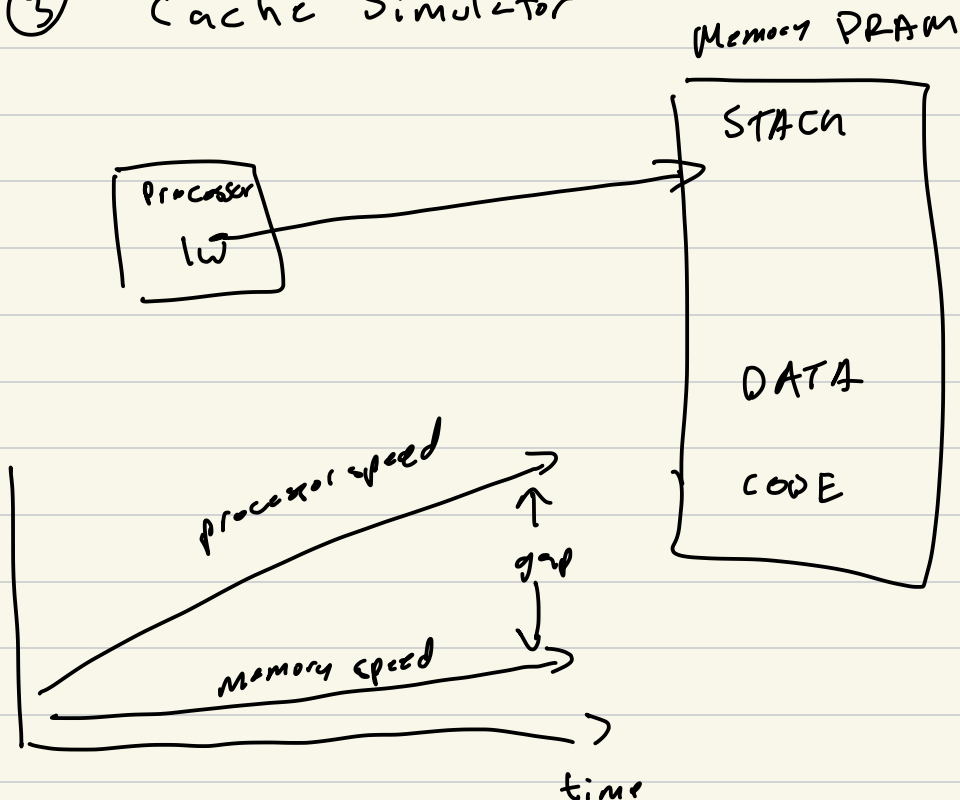 ③ Cache Simulator
Memory DRAM
STACK
Processor
lw
DATA
CODE
processor speed
gap
memory speed
time